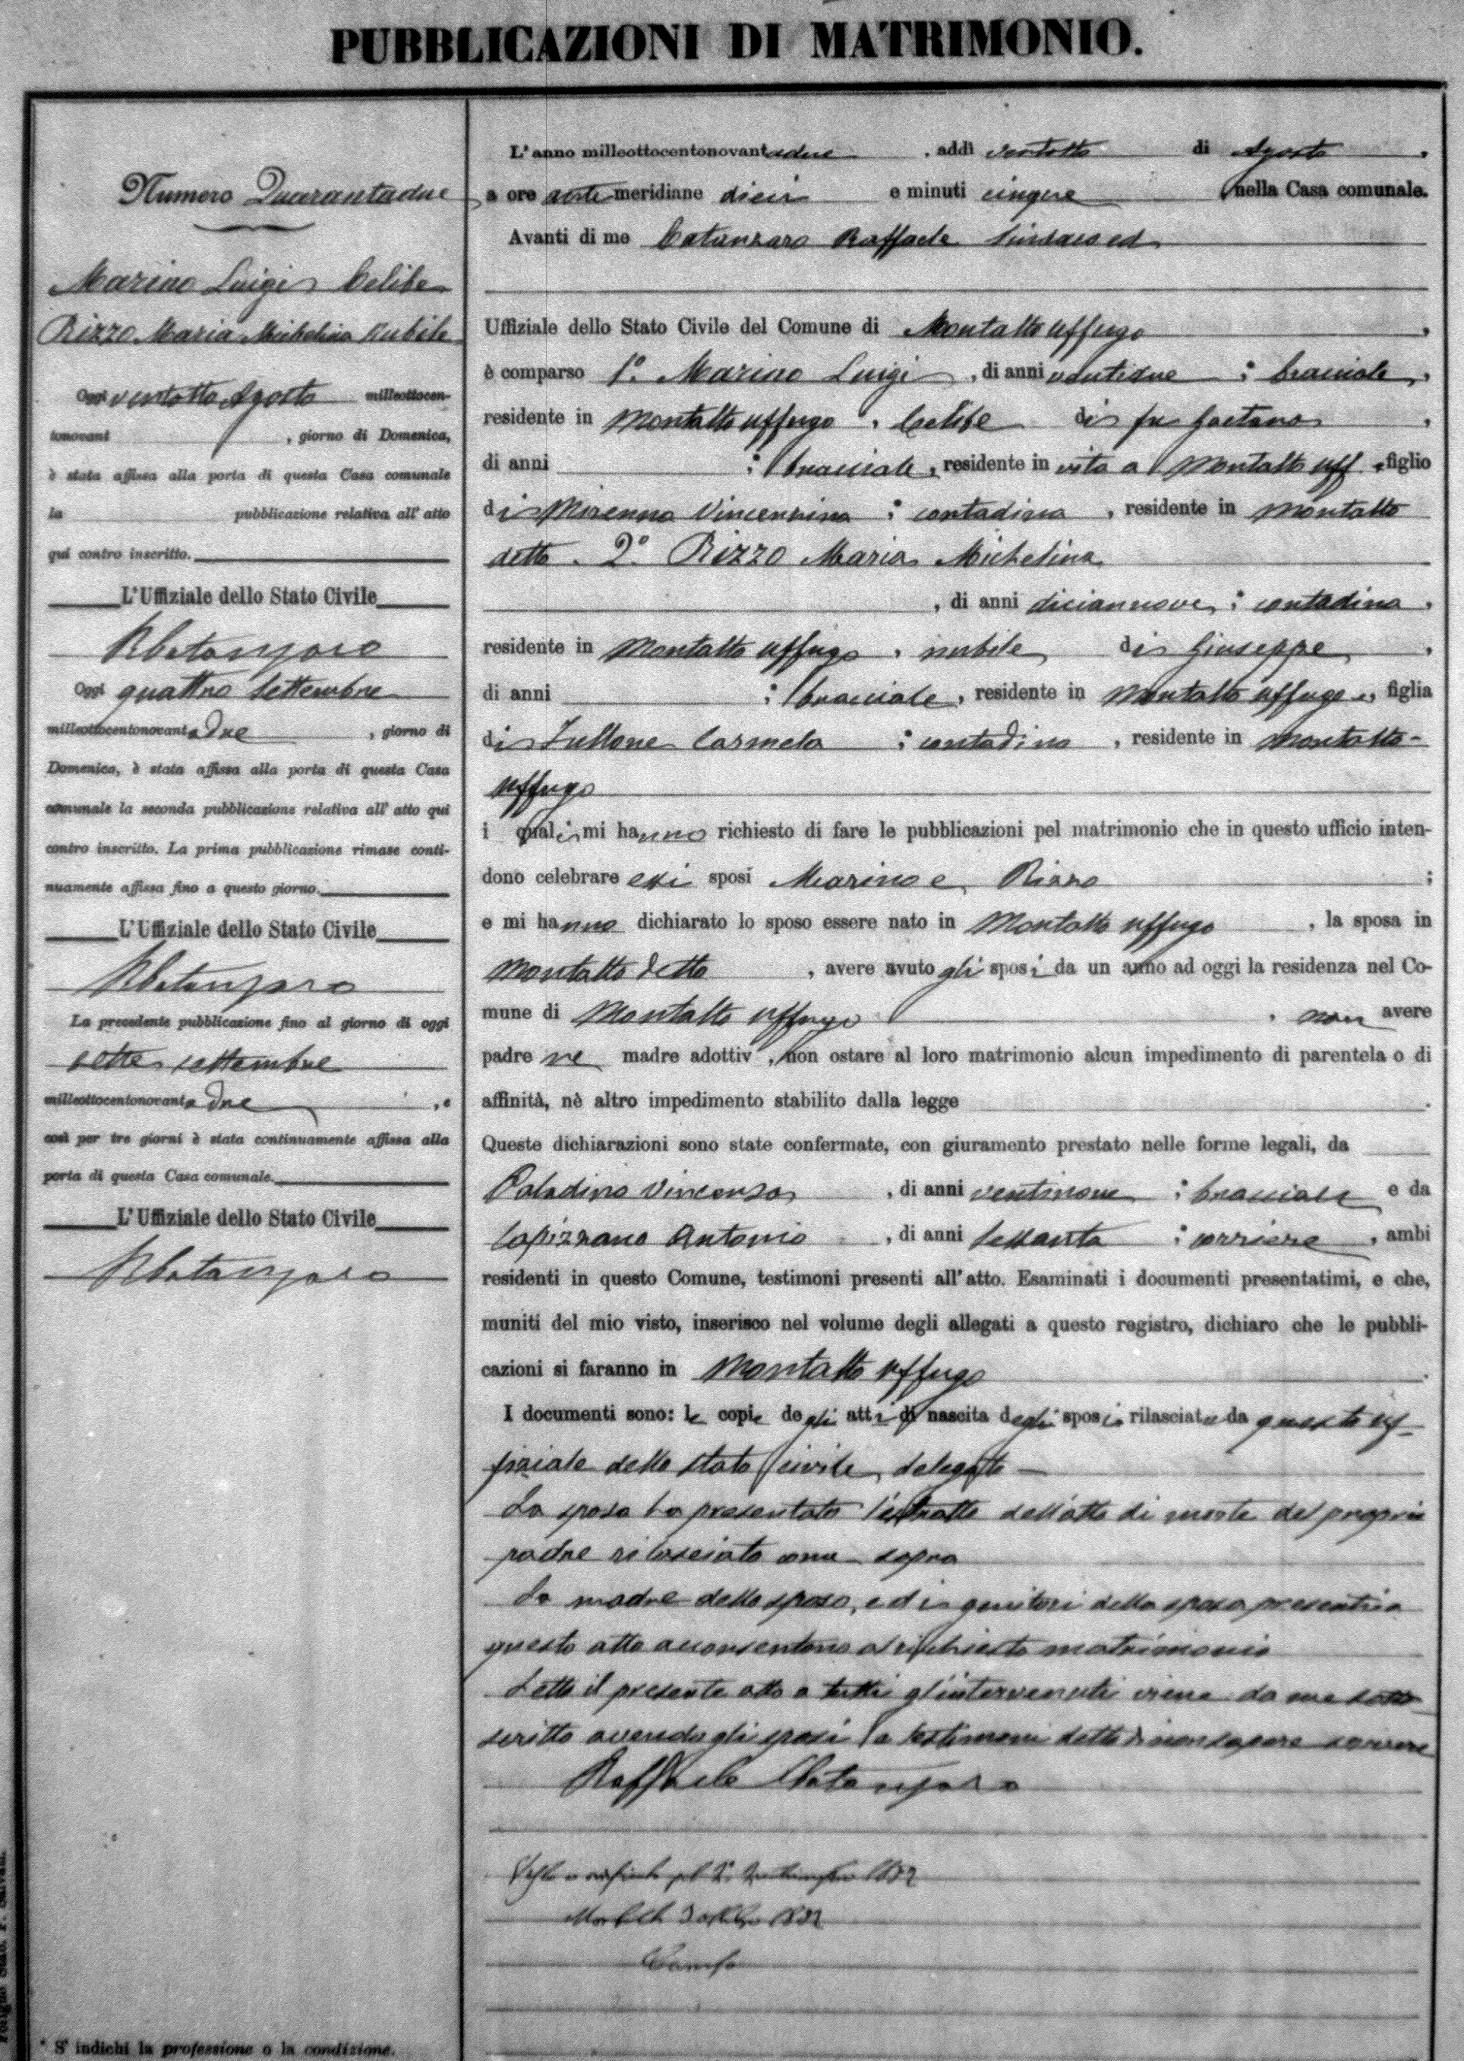 PUBBLICAZIONI DI MATRIMONIO.
Numero Quarantadue
Marino Luigi Celibe
Rizzo Maria Michelina Nubile
Oggi ventotto Agosto milleottocen-
tonovant , giorno di Domenica,
è stata affissa alla porta di questa Casa comunale
la pubblicazione relativa all' atto
qui contro inscritto.
L'Uffiziale dello Stato Civile
RCatanzaro
Oggi quattro Settembre
milleottocentonovantadue , giorno di
Domenica, è stata affissa alla porta di questa Casa
comunale la seconda pubblicazione relativa all' atto qui
contro inscritto. La prima pubblicazione rimase conti-
nuamente affissa fino a questo giorno.
L'Uffiziale dello Stato Civile
RCatanzaro
La precedente pubblicazione fino al giorno di oggi
sette settembre
milleottocentonovantadue , e
così per tre giorni è stata continuamente affissa alla
porta di questa Casa comunale.
L'Uffiziale dello Stato Civile
RCatanzaro
* S' indichi la professione o la condizione.
L'anno milleottocentonovantadue , addì ventotto di Agosto ,
a ore antemeridiane dieci e minuti cinque nella Casa comunale.
Avanti di me Catanzaro Raffaele Sindaco ed
Uffiziale dello Stato Civile del Comune di Montalto uffugo ,
è comparso 1º. Marino Luigi , di anni ventidue ; bracciale ,
residente in Montalto uffugo , Celibe di fu Gaetano ,
di anni ; bracciale , residente in vita a Montalto uff , figlio
di Vincenzina ; contadina , residente in Montalto
detto . 2º. Rizzo Maria Michelina
, di anni diciannove ; contadina ,
residente in Montalto uffugo , nubile di Giuseppe ,
di anni ; bracciale , residente in Montalto uffugo , figlia
di Carmela ; contadina , residente in Montalto-
uffugo
i quali mi hanno richiesto di fare le pubblicazioni pel matrimonio che in questo ufficio inten-
dono celebrare essi sposi Marino e Rizzo ;
e mi hanno dichiarato lo sposo essere nato in Montalto uffugo , la sposa in
Montalto detto , avere avuto gli sposi da un anno ad oggi la residenza nel Co-
mune di Montalto uffugo , non avere
padre ne madre adottiv , non ostare al loro matrimonio alcun impedimento di parentela o di
affinità, nè altro impedimento stabilito dalla legge .
Queste dichiarazioni sono state confermate, con giuramento prestato nelle forme legali, da
Paladino Vincenzo , di anni ventinove ; bracciale e da
Capizzano Antonio , di anni sessanta ; corriere , ambi
residenti in questo Comune, testimoni presenti all' atto. Esaminati i documenti presentatimi, e che,
muniti del mio visto, inserisco nel volume degli allegati a questo registro, dichiaro che le pubbli-
cazioni si faranno in Montalto uffugo .
I documenti sono: le copie degli atti di nascita degli sposi rilasciate da questo uf-
fiziale dello stato civile delegato
La sposa ha presentato l'estratto dell'atto di morte del proprio
padre rilasciato come sopra
La madre dello sposo, ed i genitori della sposa presenti a
questo atto acconsentono al richiesto matrimonio
Letto il presente atto a tutti gl'intervenuti viene da me sotto
scritto avendo gli sposi e testimoni detto di non sapere scrivere
Raffaele Catanzaro